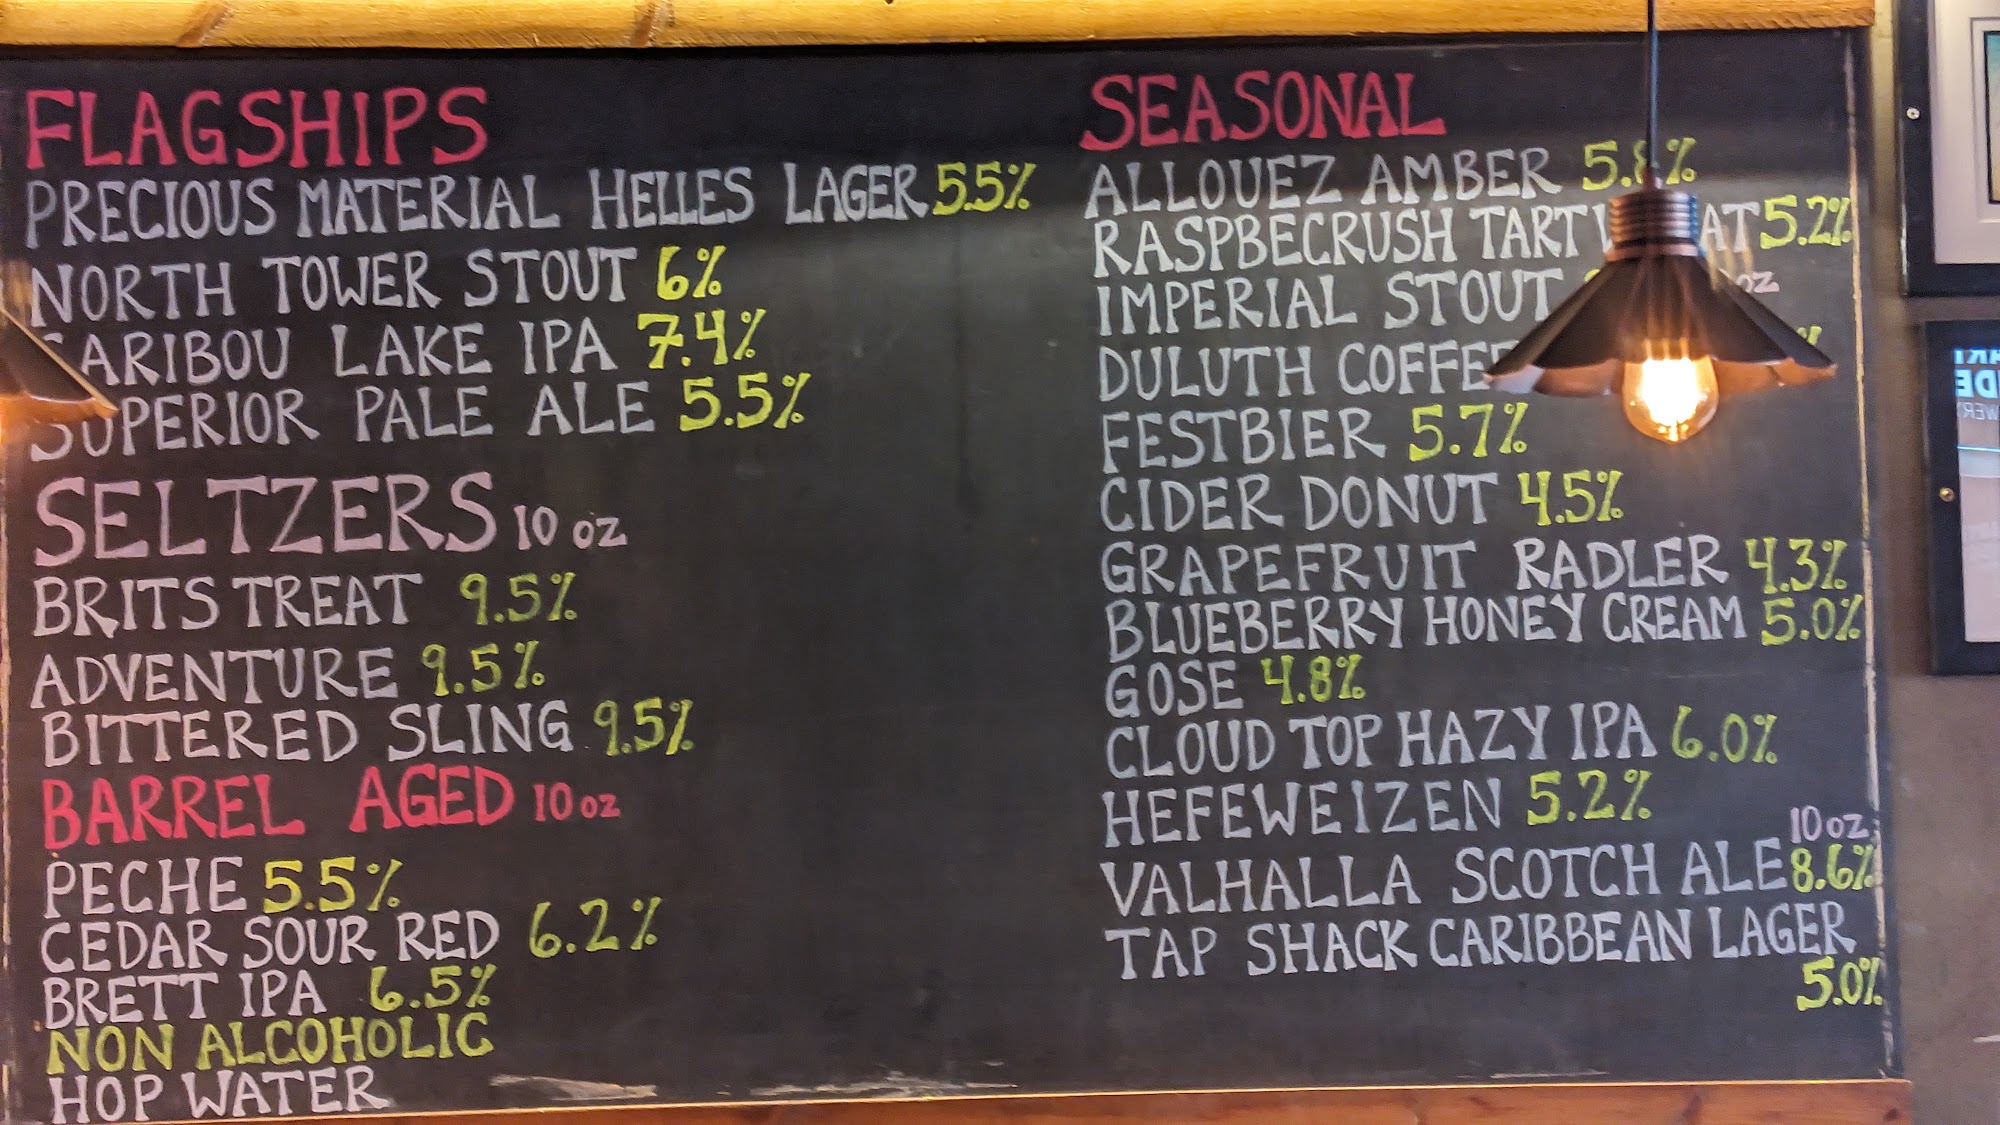 FLAGSHIPS
PRECIOUS MATERIAL HELLES LAGER 5.5%
NORTH TOWER STOUT 6%
CARIBOU LAKE IPA 7.4%
SUPERIOR PALE ALE 5.5%
SELTZERS 10 OZ
BRITS TREAT 9.5%
ADVENTURE 9.5%
BITTERED SLING 9.5%
BARREL AGED 10 OZ
PECHE 5.5%
CEDAR SOUR RED 6.2%
BRETT IPA 6.5%
NON ALCOHOLIC
HOP WATER
SEASONAL
ALLOUEZ AMBER
RASPBECRUSH TART 5.2%
IMPERIAL STOUT OZ
DULUTH COFFEE
FESTBIER 5.7%
CIDER DONUT 4.5%
GRAPEFRUIT RADLER 4.3%
BLUEBERRY HONEY CREAM 5.0%
GOSE 4.8%
CLOUD TOP HAZY IPA 6.0%
HEFEWEIZEN 5.2%
10 OZ
VALHALLA SCOTCH ALE 8.6%
TAP SHACK CARIBBEAN LAGER
5.0%